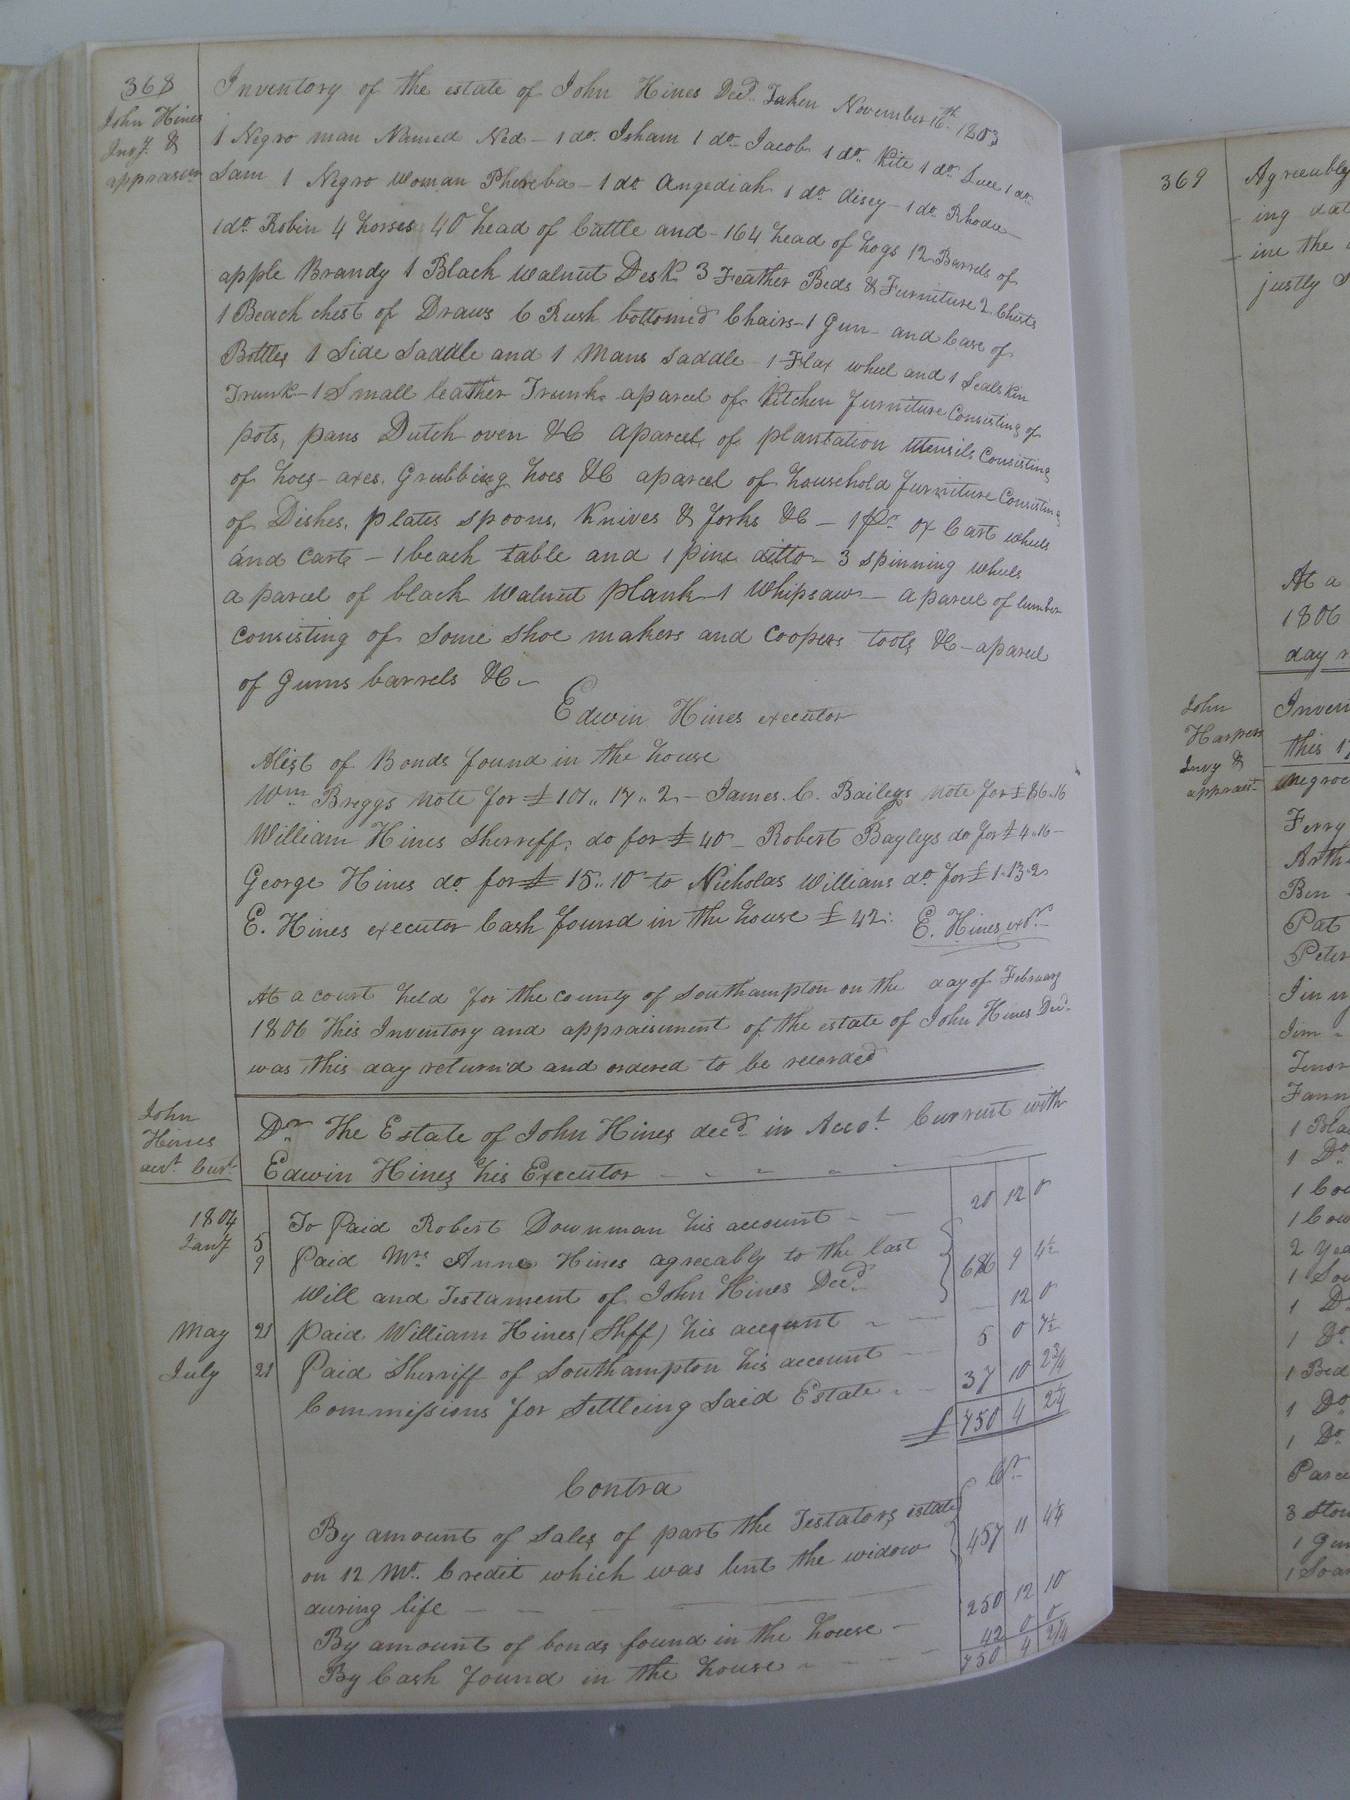 368
John Hines
Invy. &
appraismt
Inventory of the estate of John Hines Decd. Taken November 16th. 1803
1 Negro man Named Ned - 1 do. Isham 1 do. Jacob 1 do. Kite 1 do. Luce 1 do.
Sam 1 Negro Woman Phereba - 1 do Angediah 1 do disey - 1 do. Rhoda -
1 do. Robin 4 horses 40 head of Cattle and - 164 head of hogs 12 Barrels of
apple Brandy 1 Black Walnut Desk 3 Feather Beds & Furniture 2 Chests
1 Beach chest of Draws 6 Rush bottomed Chairs - 1 Gun - and Case of
Bottles 1 Side Saddle and 1 Mans Saddle - 1 Flax wheel and 1 Sealskin
Trunk - 1 Small leather Trunk aparcel of Kitchen furniture Consisting of
pots, pans Dutch oven &C aparcel of plantation utensils Consisting
of hoes - axes. Grubbing hoes &C aparcel of household furniture Consisting
of Dishes, plates spoons, Knives & forks &C - 1 pr. ox Cart wheels
and Cart - 1 beach table and 1 pine ditto - 3 spinning wheels
a parcel of black Walnut plank 1 Whipsaw - a parcel of lumber
consisting of Some shoe makers and Coopers tools &C - aparcel
of Gums barrels &C -
Edwin Hines executor
Alist of Bonds found in the house
Wm Briggs note for £ 101.. 17.. 2. - James. C. Baileys note for £ 86.16
William Hines Sherreff. do for £ 40 - Robert Bayleys do for £ 4.16 -
George Hines do. for £ 15.. 10 - to Nicholas Willians do. for £ 1.13.2
E. Hines executor Cash found in the house £ 42: E. Hines exr.
At a court held for the county of Southampton on the day of February
1806 This Inventory and appraisment of the estate of John Hines Decd.
was this day return'd and ordered to be recorded
John
Hines
acct. Curt.
Dr. The Estate of John Hines decd. in Acco.t Current with
Edwin Hines his Executor
1804
Jany 5 To Paid Robert Downman his account - - 20 12 0
9 Paid Mrs Anne Hines agreeably to the last
Will and Testament of John Hines Decd. 686 9 4½
May 21 Paid William Hines (Shff) his account - - 12 0
July 21 Paid Sherriff of Southampton his account - 5 0 7½
Commissions for Settleing Said Estate - - 37 10 2¾
£ 750 4 2¼
Contra Cr.
By amount of Sales of part the Testators estate
on 12 Mo. Credit which was lent the widow 457 11 4¼
during life
By amount of bonds found in the house - 250 12 10
By Cash found in the house - - - 42 0 0
750 4 2¼
369
Agreeably
ing
ine the
justly
At a
1806
day
John
Harpers
Invy &
appraist.
Inven
this 1
negroe
Ferry
Arth
Ben -
Pat
Peter
Jim -
Fann
1 Bla
1 Do.
1 Cow
2 yea
1 Sow
1 Do
1 Do
1 Bed
1 Do
1 Do
Parce
3 Ston
1 Gun